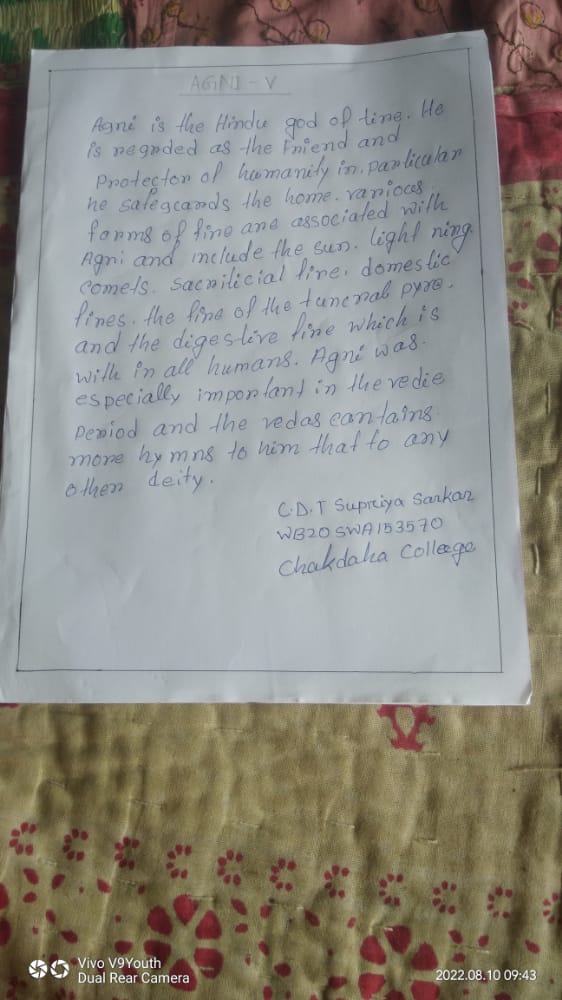 AGNI - V
Agni is the Hindu god of tine. He
is regnded as the Friend and
Protector of humanity in. particular
he safegcards the home. varioces
forms of fire are associated with
Agni and include the sun. light ning.
comets. sacrilicial fire. domestic
fines. the fire of the tuneral pyre.
and the digestive fire which is
with in all humans. Agni was.
especially important in the vedie
Period and the vedas cantains
more hy mns to him that to any
other deity.
C.D.T Supriya Sarkar
WB20SWA153570
Chakdaha Colleege
Vivo V9Youth
Dual Rear Camera
2022.08.10 09:43